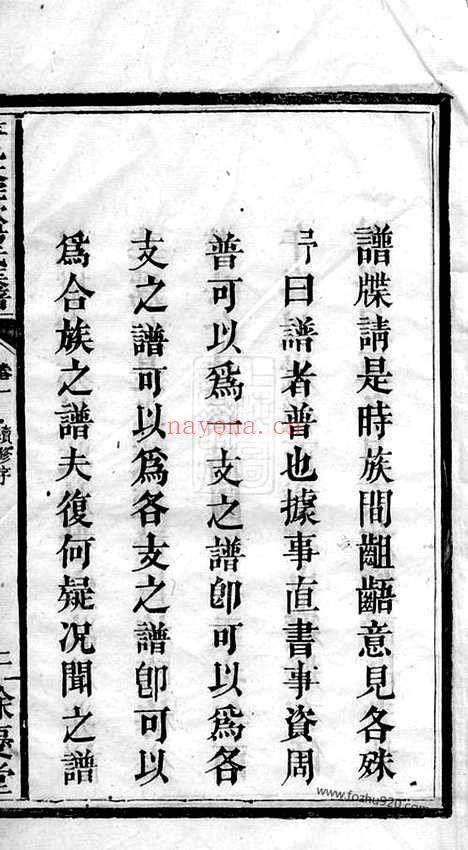 譜牒請是時族間齟齬意見各殊
曰譜者普也據事直書事資周
普可以為 支之譜即可以為各
支之譜可以為各支之譜即可以
為合族之譜夫復何疑况聞之譜
卷一 續修序
餘慶堂
nayona.cn
www.fozhu920.com